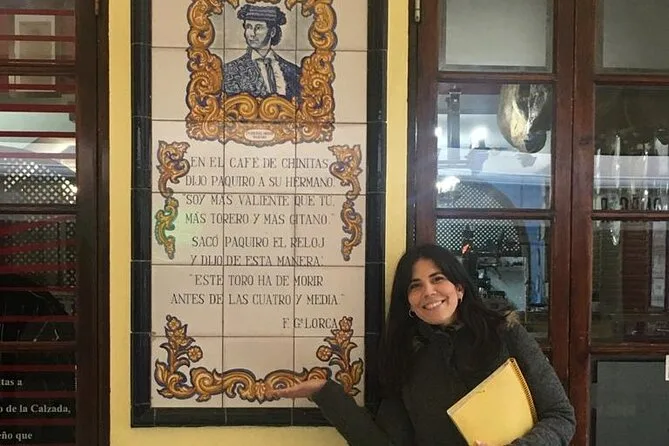 EN EL CAFE DE CHINITAS
DIJO PAQUIRO A SU HERMANO:
"SOY MAS VALIENTE QUE TU,
MÁS TORERO Y MAS GITANO."
SACÓ PAQUIRO EL RELOJ
Y DIJO DE ESTA MANERA:
"ESTE TORO HA DE MORIR
ANTES DE LAS CUATRO Y MEDIA."
F. Gª LORCA
tas a
o de la Calzada,
eño que